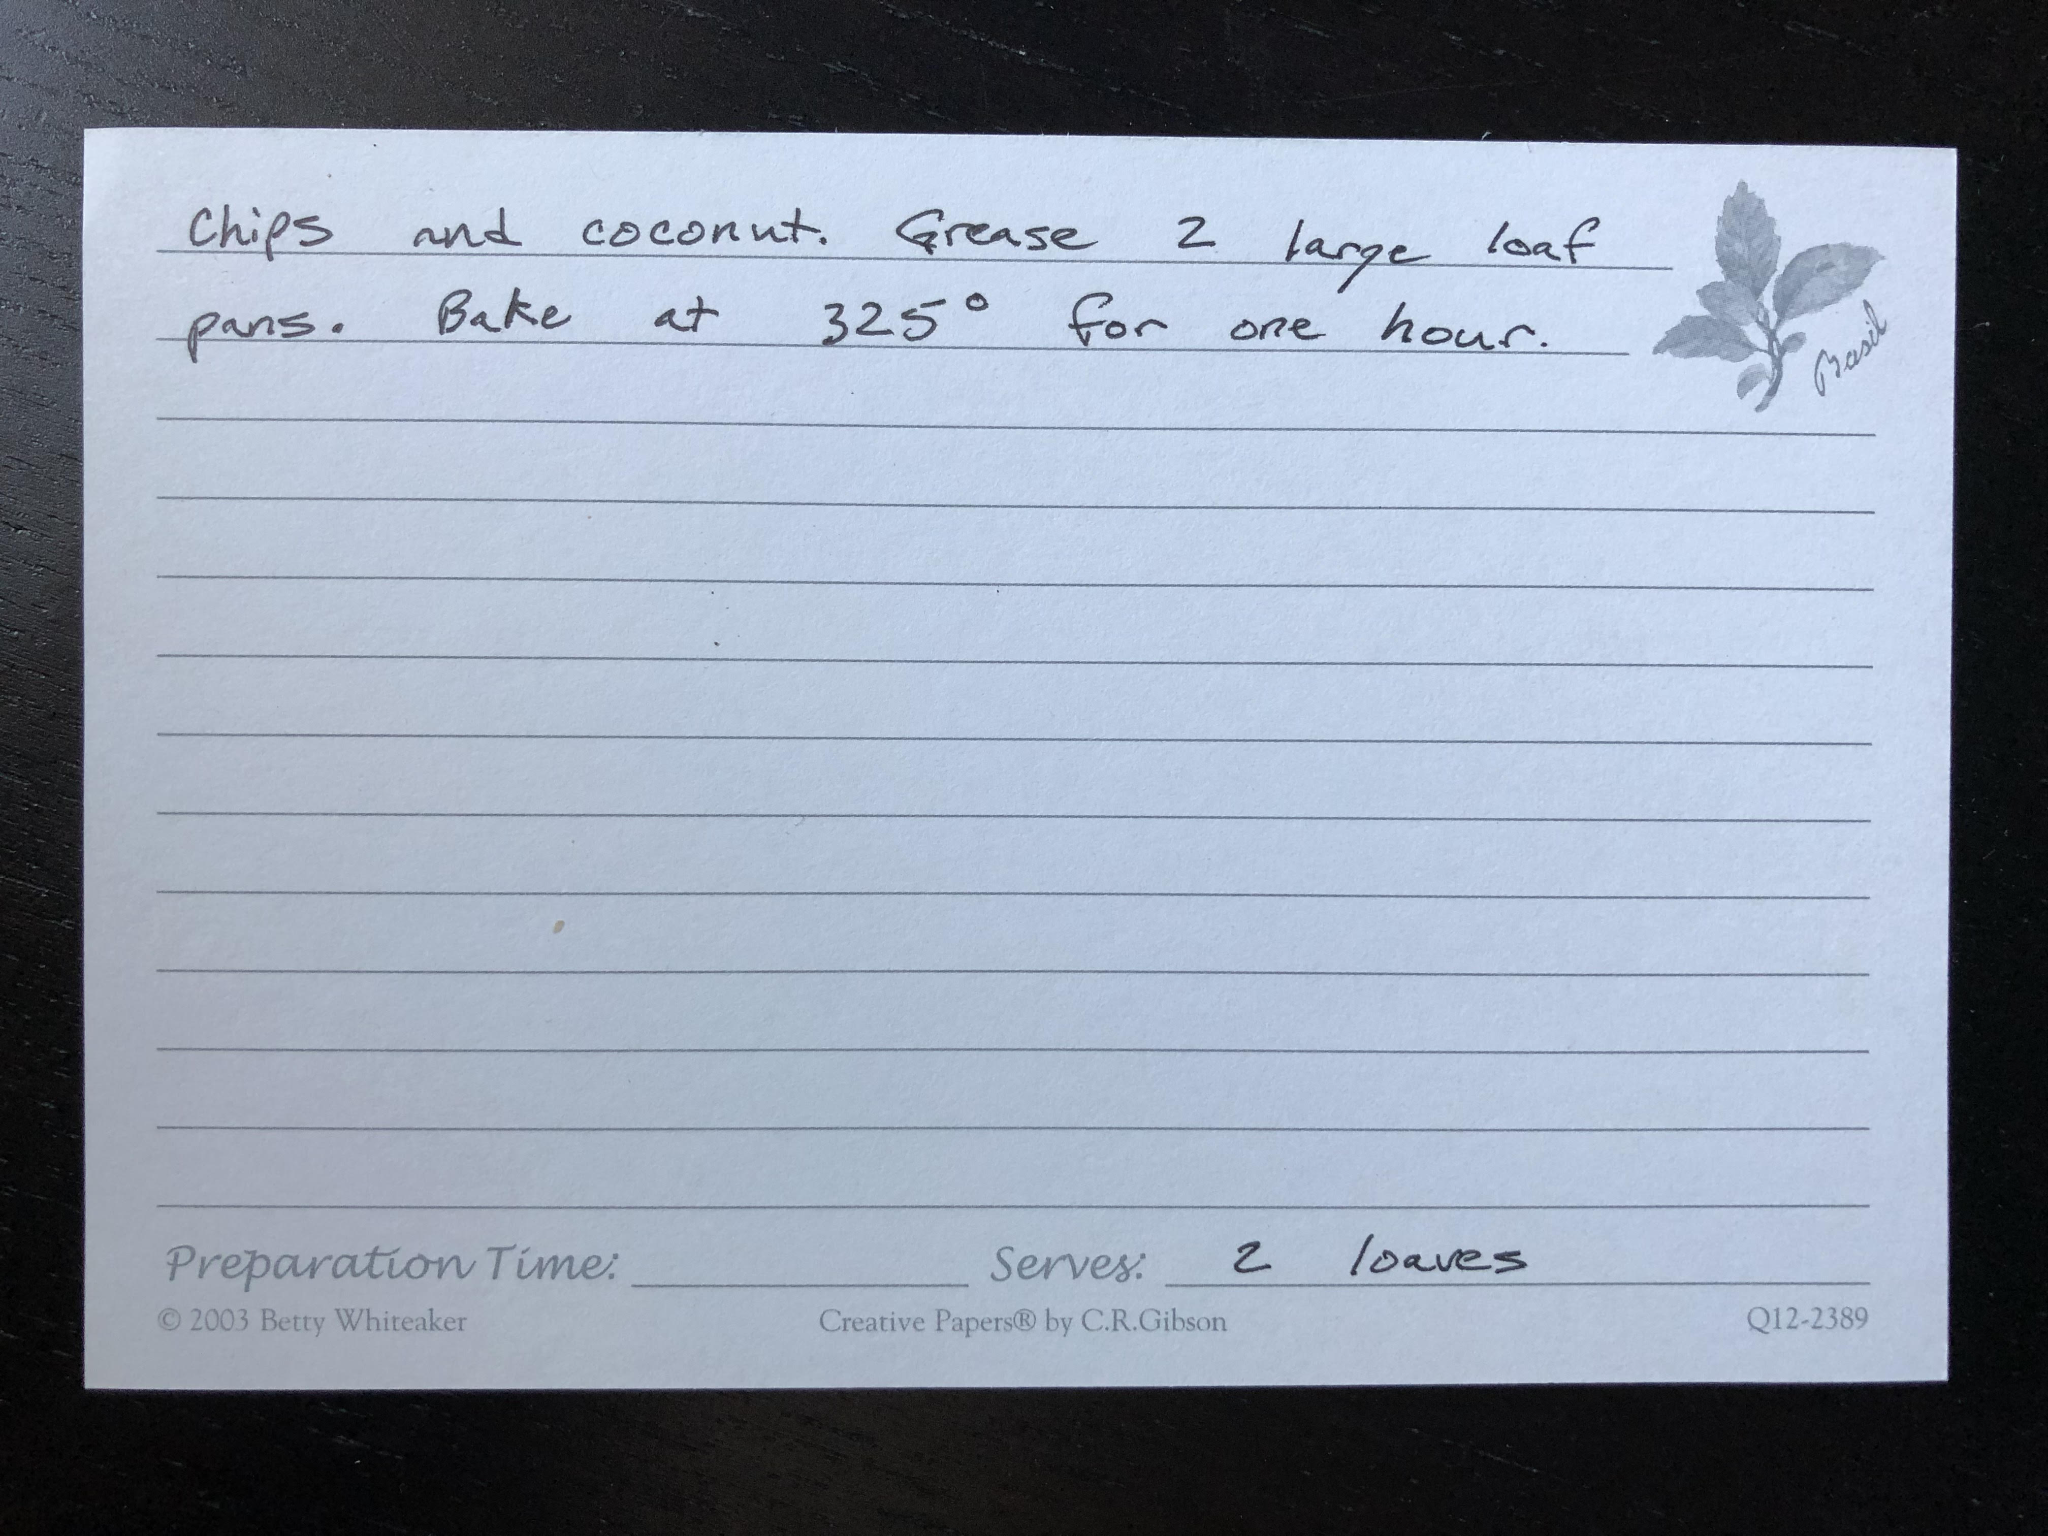 Chips and coconut. Grease 2 large loaf
pans. Bake at 325° for one hour.
Basil
Preparation Time: Serves: 2 loaves
© 2003 Betty Whiteaker Creative Papers® by C.R.Gibson Q12-2389